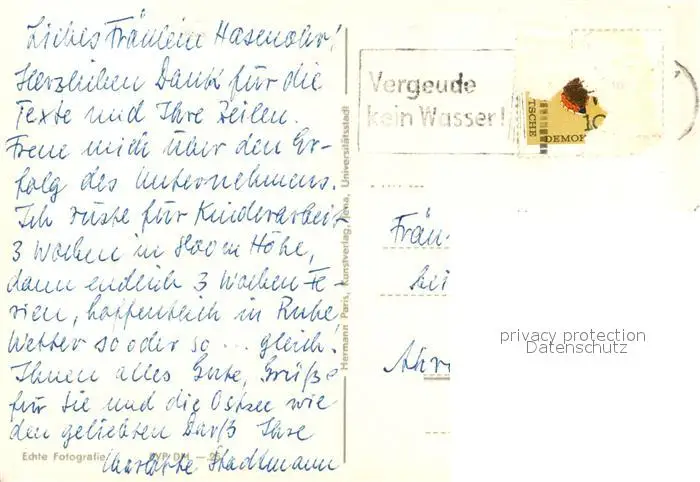 Liebes Fräulein Hasenohr!
Herzlichen Dank für die
Texte und Ihre Zeilen.
Freue mich über den Er-
folg des Unternehmens.
Ich rüste für Kinderarbeit
3 Wochen in 800 m Höhe,
dann endlich 3 Wochen Fe-
rien, hoffentlich in Ruhe
Wetter so oder so ... gleich!
Ihnen alles Gute, Grüße
für Sie und die Ostsee wie
den geliebten Darß Ihre
Charlotte Stadtmann
Echte Fotografie
DM -.25
Hermann Paris, Kunstverlag, Jena, Universitätsstadt
Vergeude
kein Wasser!
TSCHE
DEMOK
10
Fräu-
bei
Ahre
privacy protection
Datenschutz